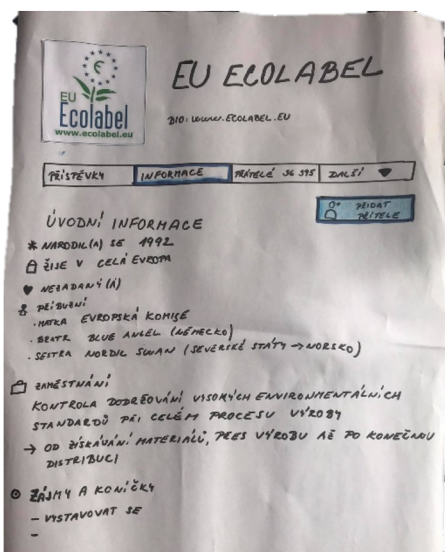 EU
Ecolabel
www.ecolabel.eu
EU ECOLABEL
BIO: www.ECOLABEL.EU
PŘÍSTĚVKY
INFORMACE
PŘÁTELÉ 36 395
DALŠÍ
PŘIDAT
PŘÍTELE
ÚVODNÍ INFORMACE
* NARODIL(A) SE 1992
ŽIJE V CELÁ EVROPA
NEZADANÝ(Á)
PŘÍBUZNÍ
· MATKA EVROPSKÁ KOMISE
· BRATR BLUE ANGEL (NĚMECKO)
· SESTRA NORDIC SWAN (SEVERSKÉ STÁTY → NORSKO)
ZAMĚSTNÁNÍ
KONTROLA DODRŽOVÁNÍ VYSOKÝCH ENVIRONMENTÁLNÍCH
STANDARDŮ PŘI CELÉM PROCESU VÝROBY
→ OD ZÍSKÁVÁNÍ MATERIÁLŮ, PŘES VÝROBU AŽ PO KONEČNOU
DISTRIBUCI
ZÁJMY A KONÍČKY
- VYSTAVOVAT SE
-